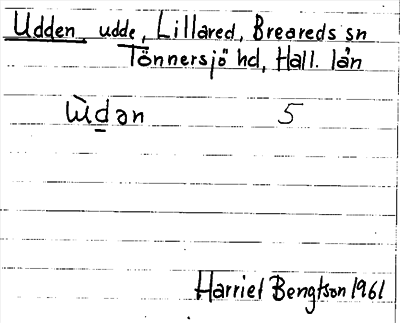 Udden udde, Lillared, Breareds sn
Tönnersjö hd, Hall. län
ùd̲ən 5
Harriet Bengtson 1961